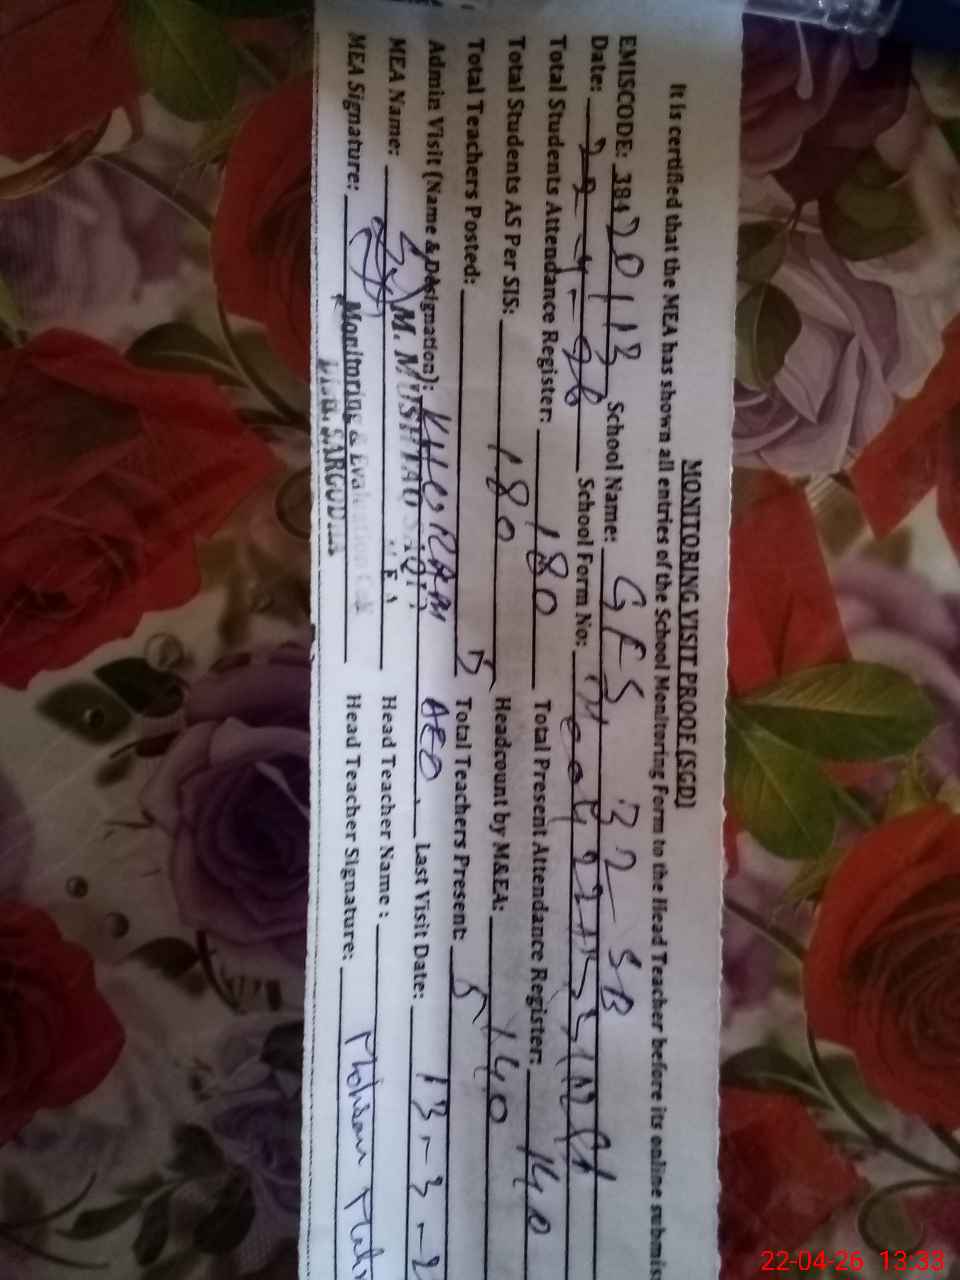 MONITORING VISIT PROOF (SGD)
It is certified that the MEA has shown all entries of the School Monitoring Form to the Head Teacher before its online submis
EMISCODE: 38420113 School Name: GES 32 SB
Date: 22-4-26 School Form No:
Total Students Attendance Register: 180 Total Present Attendance Register: 140
Total Students AS Per SIS: 180 Headcount by M&EA: 140
Total Teachers Posted: 5 Total Teachers Present: 5
Admin Visit (Name & Designation): KHURRAM AEO. Last Visit Date: 13-3-2
MEA Name: M. MUSHTAQ Head Teacher Name:
MEA Signature: Monitoring & Evaluation Cell Head Teacher Signature: Mohsan
SARGODHA
22-04-26 13:33